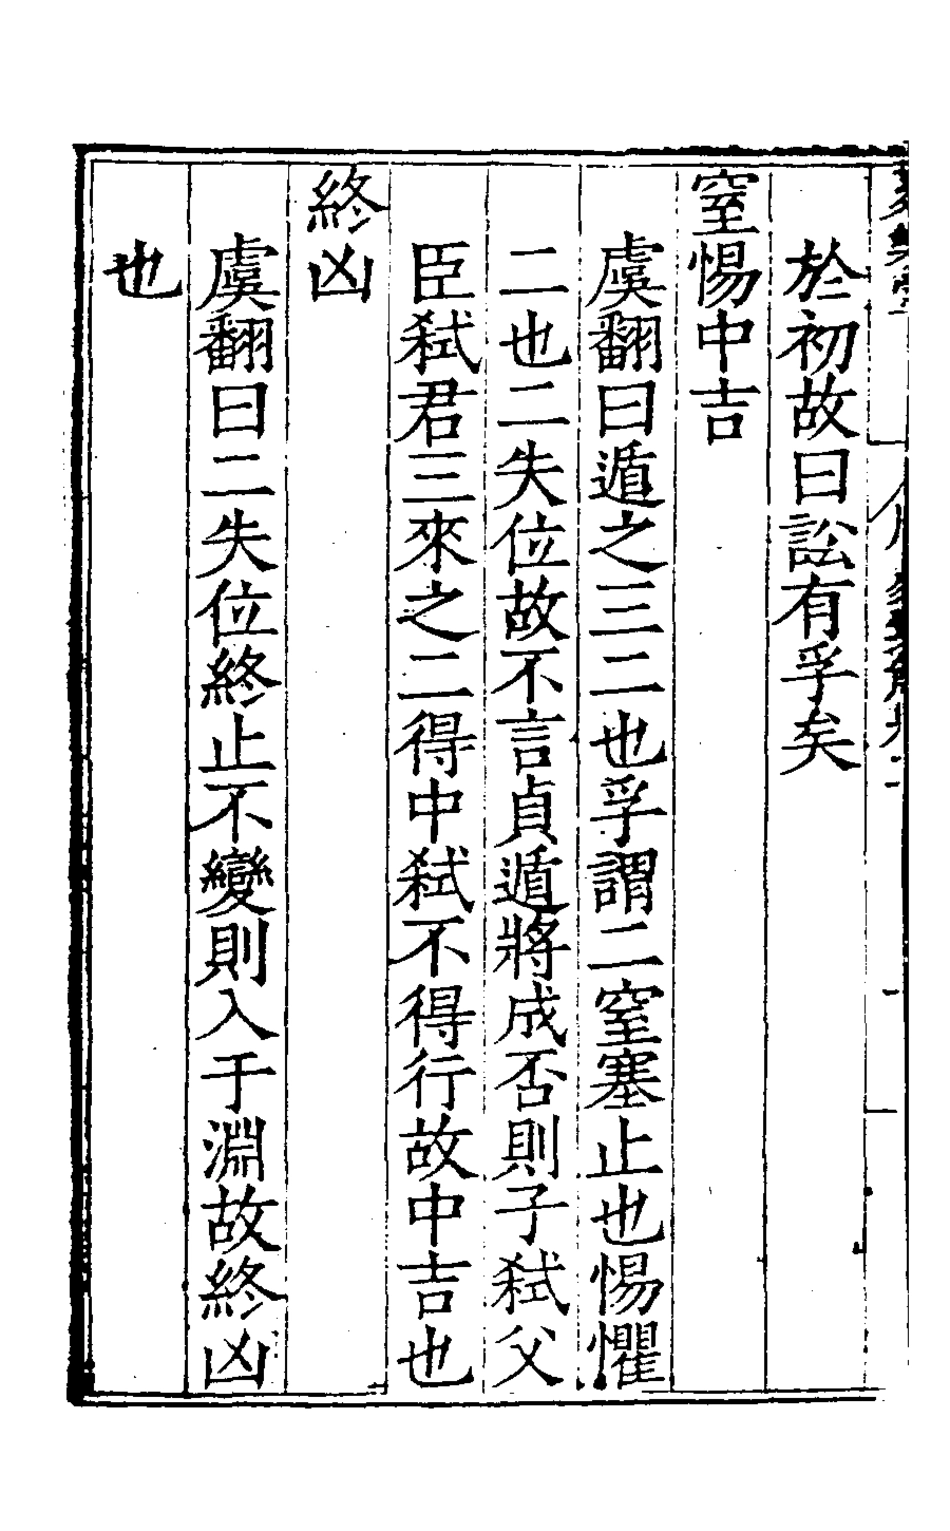 於初故曰訟有孚矣
窒惕中吉
虞翻曰遁之三二也孚謂二窒塞止也惕懼
二也二失位故不言貞遁將成否則子弑父
臣弑君三來之二得中弑不得行故中吉也
終凶
虞翻曰二失位終止不變則入于淵故終凶
也